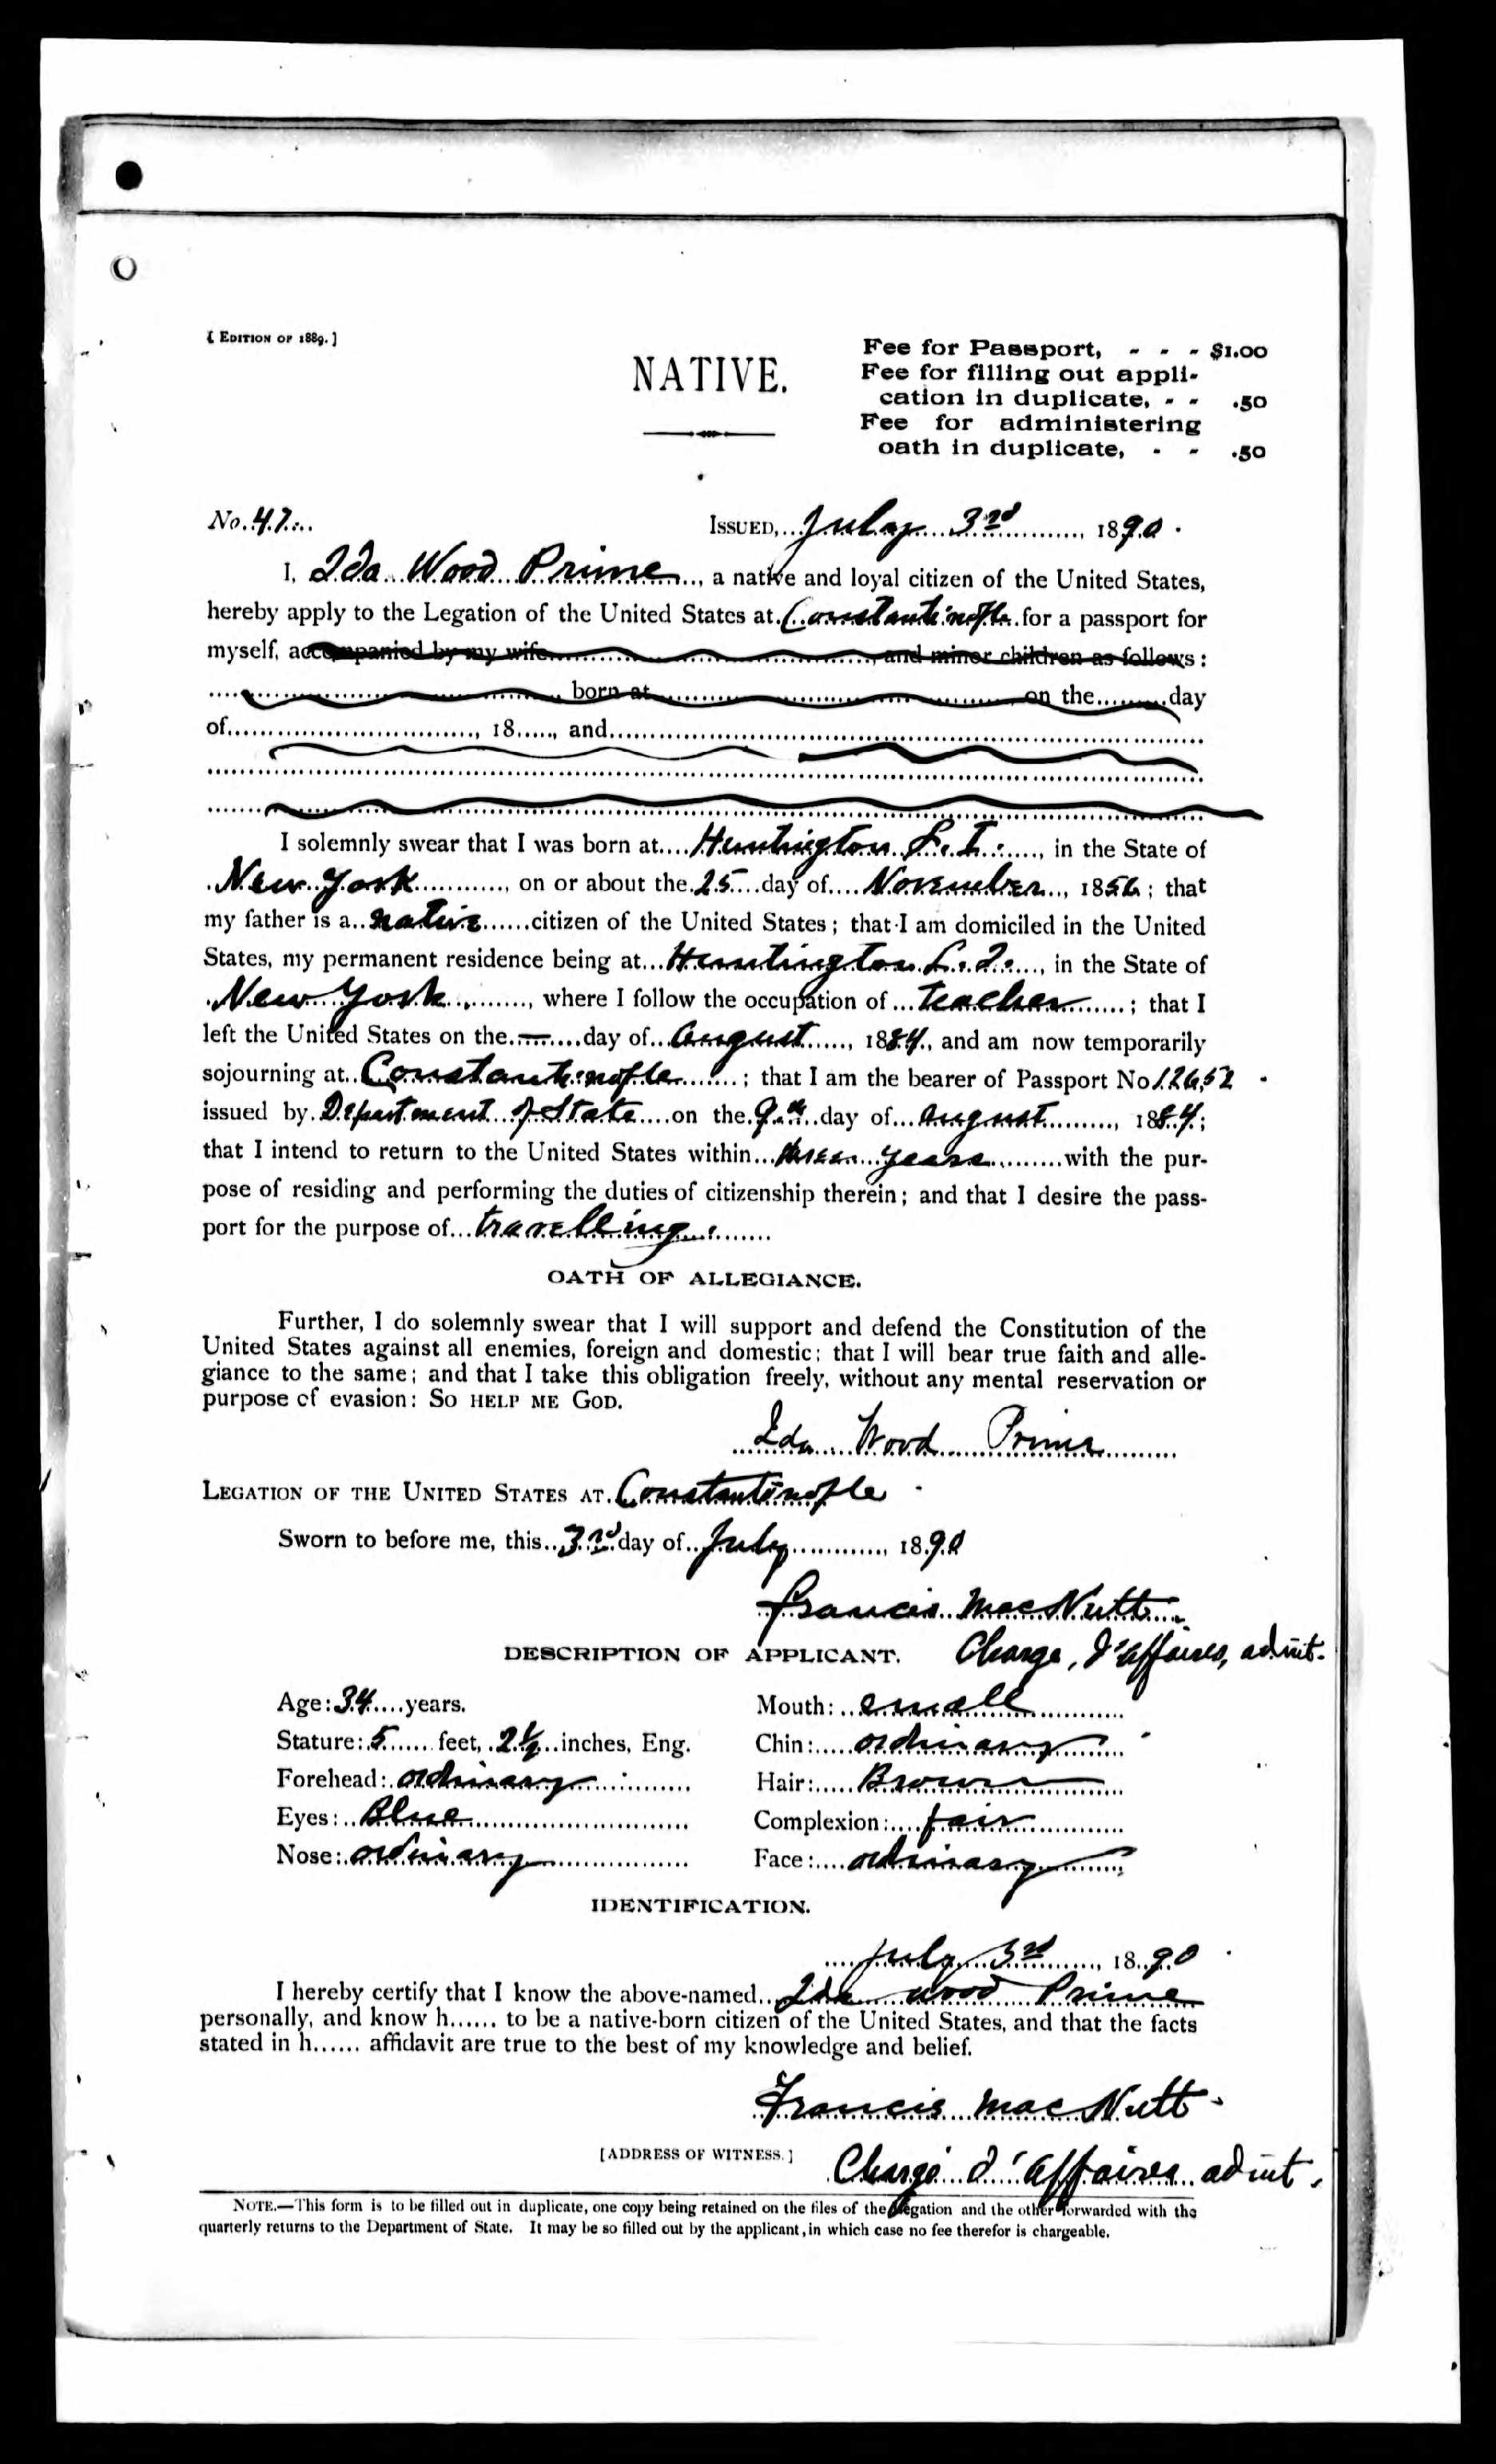 [ EDITION OF 1889. ]
NATIVE.
Fee for Passport, - - - $1.00
Fee for filling out appli-
cation in duplicate, - - .50
Fee for administering
oath in duplicate, - - .50
No. 47. ISSUED, July 3rd, 1890.
I, Ida Wood Prime, a native and loyal citizen of the United States,
hereby apply to the Legation of the United States at Constantinople for a passport for
myself, accompanied by my wife, and minor children as follows:
born at on the day
of, 18, and
I solemnly swear that I was born at Huntington L. I., in the State of
New York, on or about the 25 day of November, 1856; that
my father is a native citizen of the United States; that I am domiciled in the United
States, my permanent residence being at Huntington L. I., in the State of
New York, where I follow the occupation of teacher; that I
left the United States on the — day of August, 1884, and am now temporarily
sojourning at Constantinople; that I am the bearer of Passport No 12652
issued by Department of State on the 9th day of August, 1884;
that I intend to return to the United States within three years with the pur-
pose of residing and performing the duties of citizenship therein; and that I desire the pass-
port for the purpose of travelling.
OATH OF ALLEGIANCE.
Further, I do solemnly swear that I will support and defend the Constitution of the
United States against all enemies, foreign and domestic; that I will bear true faith and alle-
giance to the same; and that I take this obligation freely, without any mental reservation or
purpose of evasion: SO HELP ME GOD.
Ida Wood Prime
LEGATION OF THE UNITED STATES AT Constantinople
Sworn to before me, this 3rd day of July, 1890
Francis MacNutt
DESCRIPTION OF APPLICANT. Charge, d'affaires, ad int.
Age: 34 years. Mouth: small
Stature: 5 feet, 2 1/2 inches, Eng. Chin: ordinary
Forehead: ordinary Hair: Brown
Eyes: Blue Complexion: fair
Nose: ordinary Face: ordinary
IDENTIFICATION.
July 3rd, 1890
I hereby certify that I know the above-named Ida Wood Prime
personally, and know h...... to be a native-born citizen of the United States, and that the facts
stated in h...... affidavit are true to the best of my knowledge and belief.
Francis MacNutt
[ADDRESS OF WITNESS.] Chargé d'affaires ad int.
NOTE.—This form is to be filled out in duplicate, one copy being retained on the files of the Legation and the other forwarded with the
quarterly returns to the Department of State. It may be so filled out by the applicant, in which case no fee therefor is chargeable.